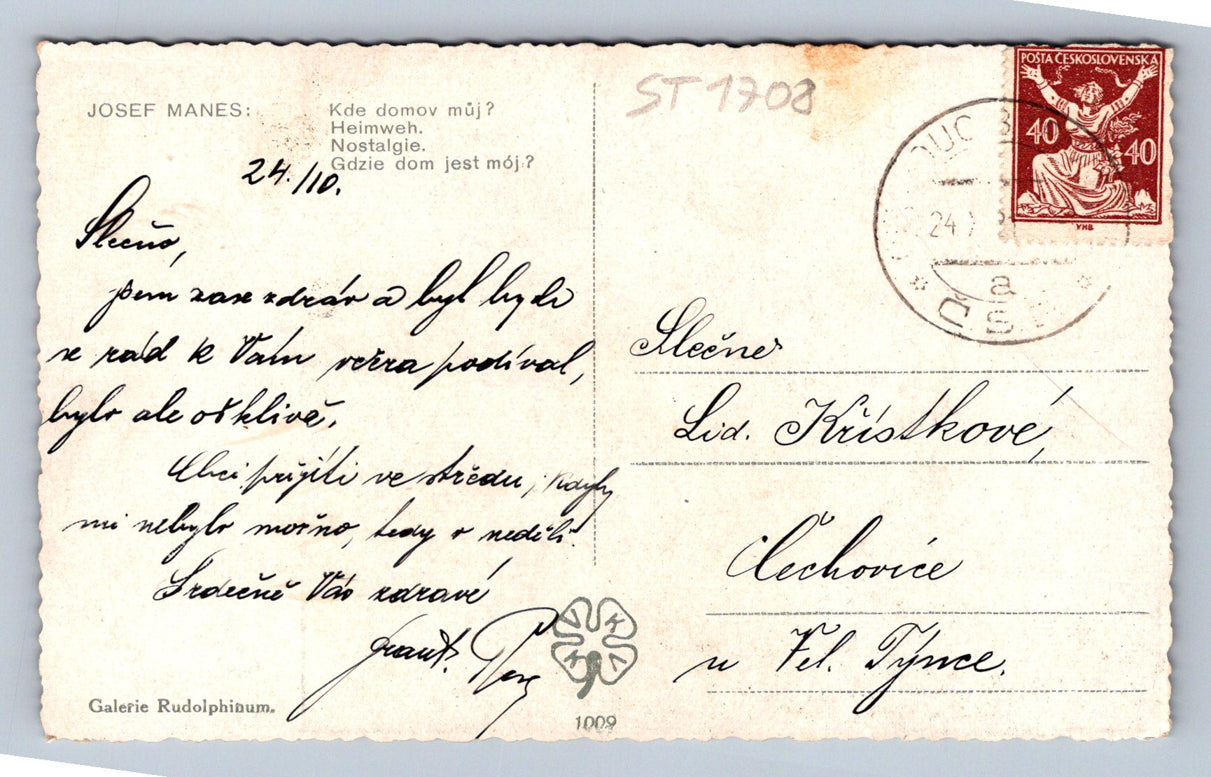 JOSEF MANES:
Kde domov můj?
Heimweh.
Nostalgie.
Gdzie dom jest mój?
24./10.
Slečno,
jsem zase zdráv a byl bych
se rád k Vám včera podíval,
bylo ale ošklivě.
Chci přijíti ve středu, kdyby
mi nebylo možno, tedy v neděli.
Srdečně Vás zdraví
Frant.
Galerie Rudolphinum.
1009
ST 1708
POŠTA ČESKOSLOVENSKÁ
40
40
VHB
24
a
ČS
Slečna
Lid. Křístkové,
Čechovice
u Vel. Týnce.